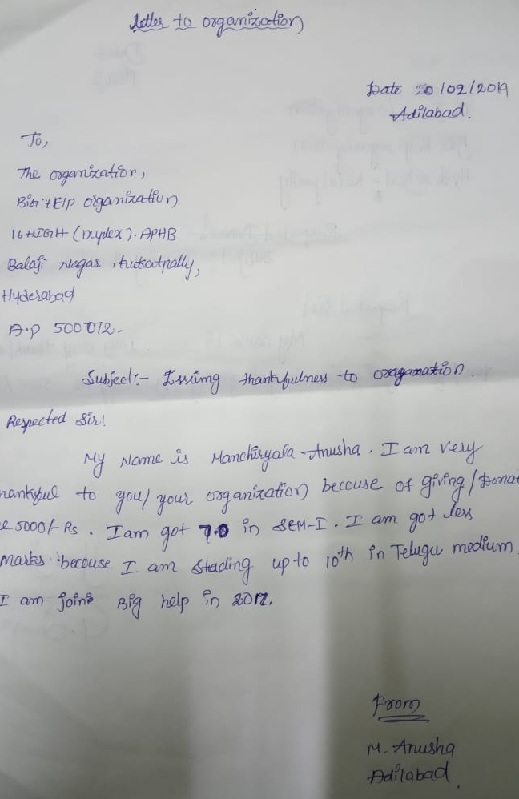 letter to organization
Date 20/02/2019
Adilabad.
To,
The organization,
organization
16 HIGH (Duplex). APHB
Balaji Nagar,
Hyderabad
A.P 500012.
Subject:- Issuing thankfulness to organization.
Respected Sir!
My Name is Manchiryala Anusha. I am very
hankful to you/your organization because of giving/Donat
e 5000/- Rs. I am got 7.0 in SEM-I. I am got less
Marks because I am Stading up to 10th in Telugu medium.
I am joins Big help in 2012.
From
M. Anusha
Adilabad.